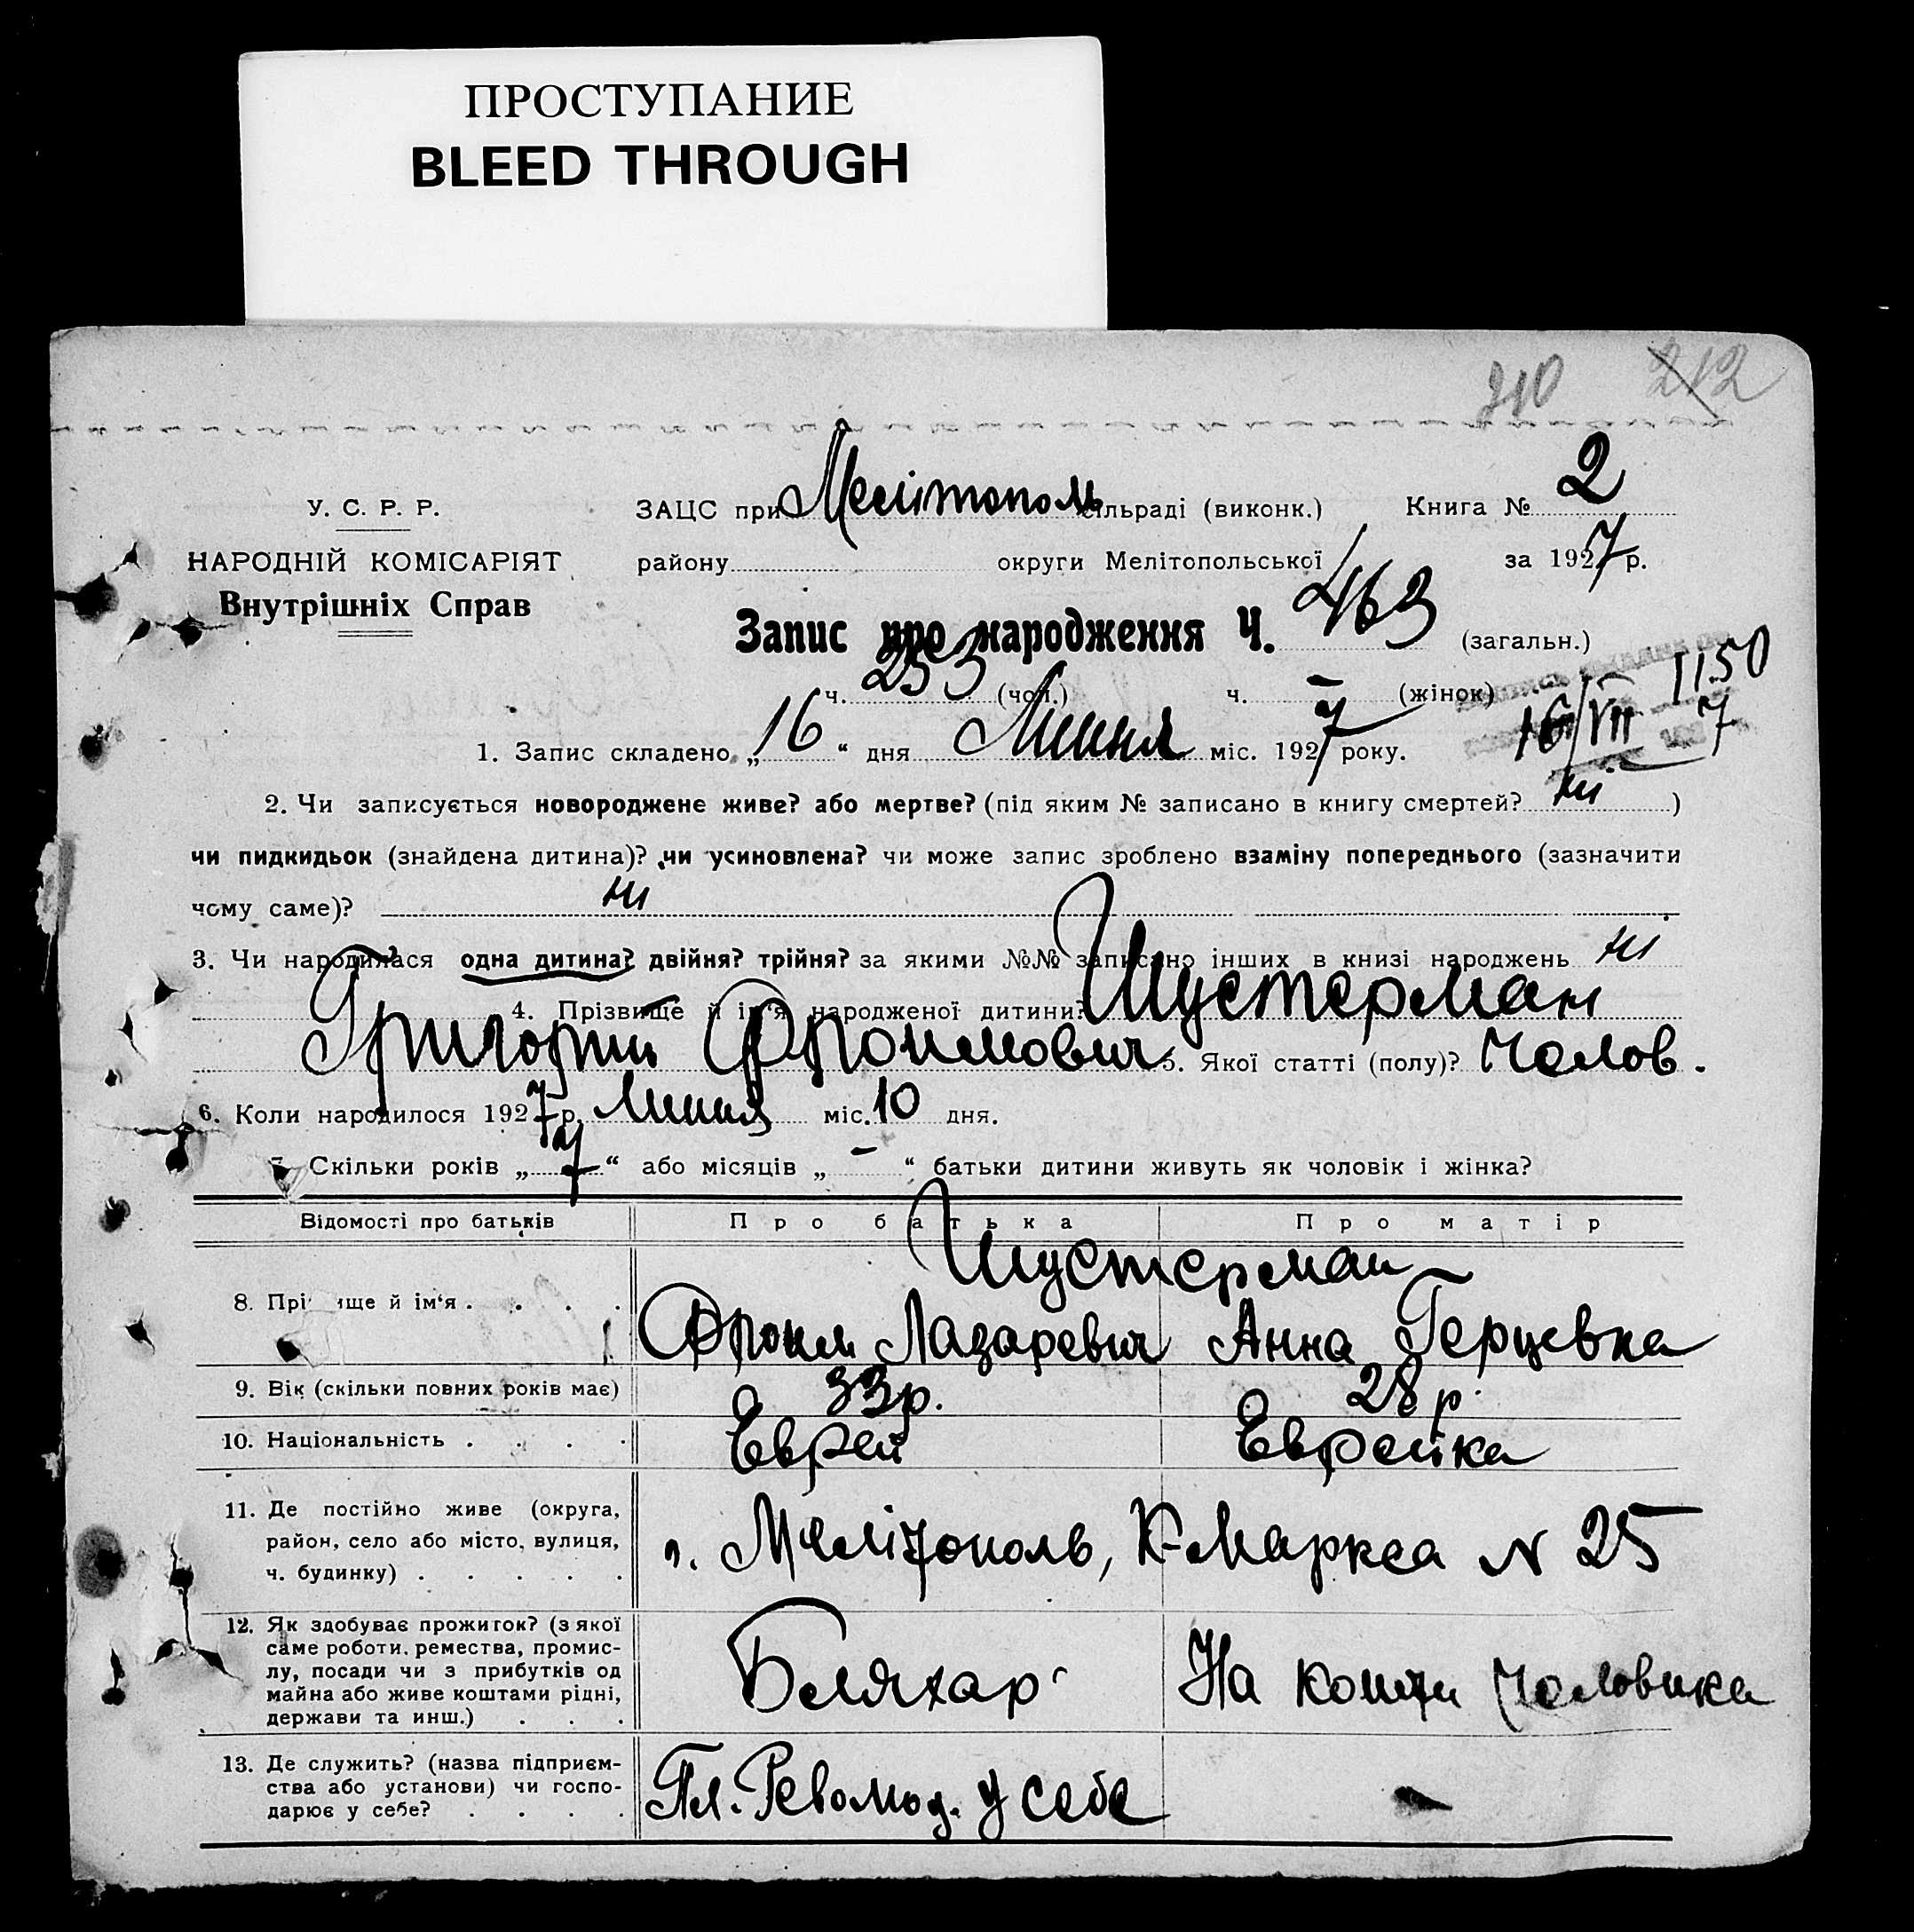 ПРОСТУПАНИЕ
BLEED THROUGH
210 212
У. С. Р. Р.
НАРОДНІЙ КОМІСАРІЯТ
Внутрішніх Справ
ЗАЦС при Мелітополь сільраді (виконк.) Книга № 2
району округи Мелітопольської за 1927 р.
Запис про народження Ч. 463 (загальн.)
ч. 253 (чол.) ч. – (жінок)
1150
16/VII 7
1. Запис складено „16“ дня Липня міс. 1927 року.
2. Чи записується новороджене живе? або мертве? (під яким № записано в книгу смертей? ні)
чи пидкидьок (знайдена дитина)? чи усиновлена? чи може запис зроблено взаміну попереднього (зазначити
чому саме)? ні
3. Чи народилася одна дитина? двійня? трійня? за якими №№ записано інших в книзі народжень ні
4. Прізвище й ім‘я народженої дитини? Шустерман
Григорий Фроимович 5. Якої статті (полу)? Чолов.
6. Коли народилося 1927 р. Липня міс. 10 дня.
7. Скільки років „7“ або місяців „–“ батьки дитини живуть як чоловік і жінка?
Відомості про батьків Про батька Про матір
Шустерман
8. Прі ище й ім‘я . . . . Фроим Лазаревич Анна Герцевна
9. Вік (скільки повних років має) 33 р. 28 р.
10. Національність . . . . Еврей Еврейка
11. Де постійно живе (округа,
район, село або місто, вулиця,
ч. будинку) . . . . .
г. Мелітополь, К-Маркса № 25
12. Як здобуває прожиток? (з якої
саме роботи, ремества, промис-
лу, посади чи з прибутків од
майна або живе коштами рідні,
держави та инш.) . . .
Бляхар На кошти Чоловика
13. Де служить? (назва підприєм-
ства або установи) чи госпо-
дарює у себе? . . . .
Пл. Револьюц. у себе